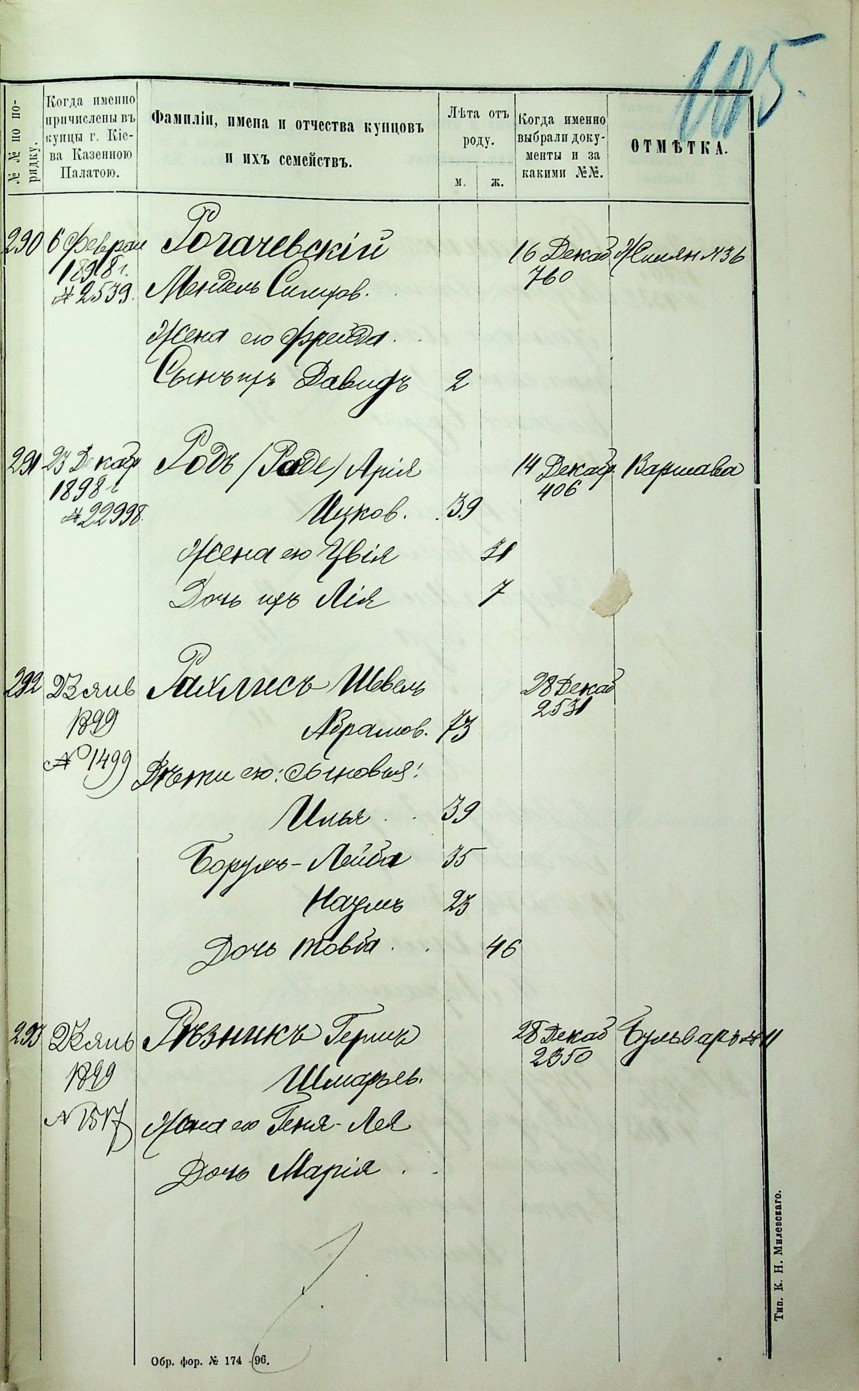 105.
№ № по по-
рядку.
Когда именно
причислены въ
купцы г. Кіе-
ва Казенною
Палатою.
Фамиліи, имена и отчества купцовъ
и ихъ семействъ.
Лѣта отъ
роду.
м. ж.
Когда именно
выбрали доку-
менты и за
какими №№.
ОТМѢТКА.
290 6 Феврал Рогачевскій 16 Декаб Жилян №36
1898 г. 760
№ 2539. Мендель Симхов.
Жена его Фрейда.
Сынъ ихъ Давидъ 2
291 23 Декабр Родъ /Раде/ Арія 14 Декабр Варшава
1898 г 406
№22998. Ицков. 39
Жена его Цвія 31
Дочь ихъ Лія 7
292 23 янв Рахлисъ Шевель 28 Декаб
1899 Абрамов. 73 2531
№1499 Дѣти его: сыновья:
Илья 39
Борухъ-Лейба 35
Наумъ 23
Дочь Товба 46
293 23 янв Рѣзникъ Гершъ 28 Декаб Бульваръ №11
1899 Шмарьев. 2350
№1517 Жена его Геня-Лея
Дочь Марія
Обр. фор. № 174-96.
Тип. К. Н. Милевскаго.